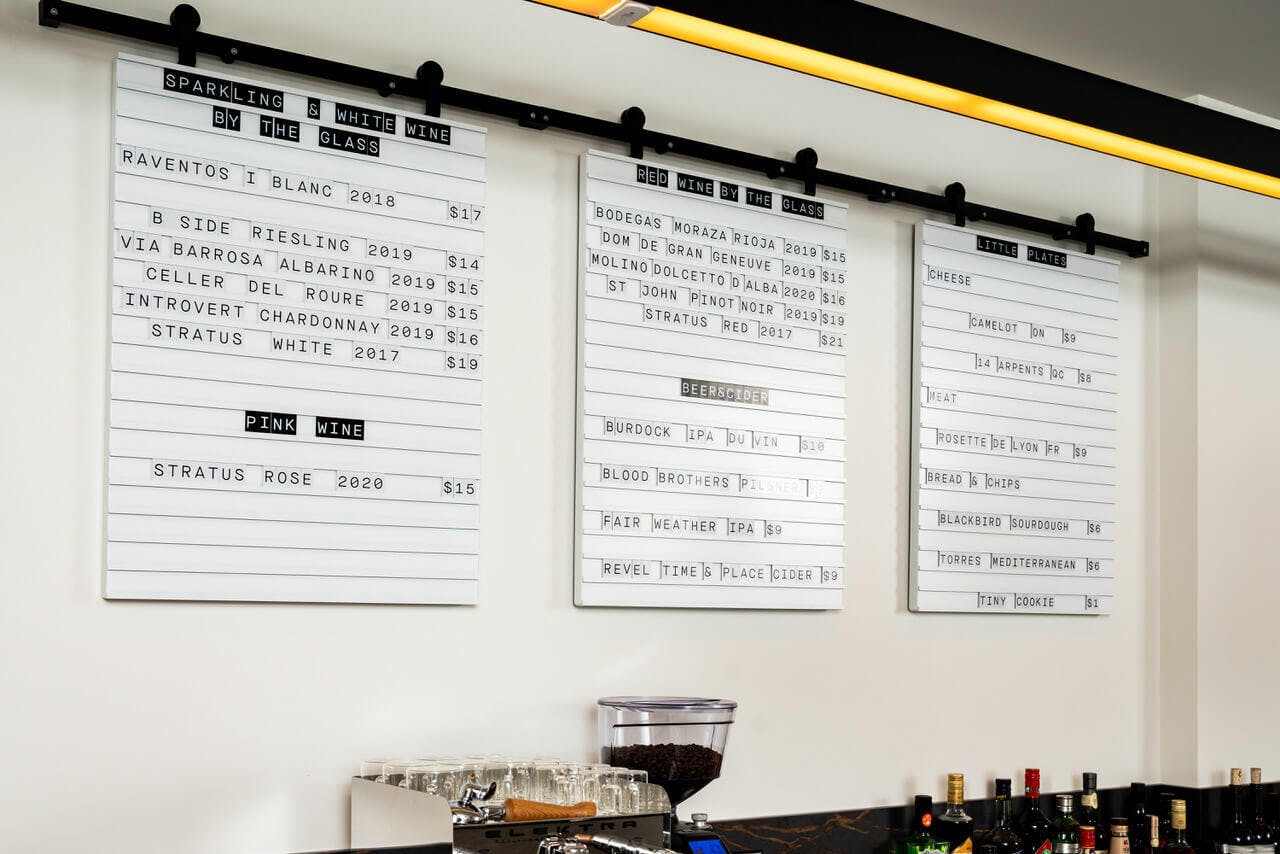 SPARKLING & WHITE WINE
BY THE GLASS
RAVENTOS I BLANC 2018 $17
B SIDE RIESLING 2019 $14
VIA BARROSA ALBARINO 2019 $15
CELLER DEL ROURE 2019 $15
INTROVERT CHARDONNAY 2019 $16
STRATUS WHITE 2017 $19
PINK WINE
STRATUS ROSE 2020 $15
RED WINE BY THE GLASS
BODEGAS MORAZA RIOJA 2019 $15
DOM DE GRAN GENEUVE 2019 $15
MOLINO DOLCETTO D'ALBA 2020 $16
ST JOHN PINOT NOIR 2019 $19
STRATUS RED 2017 $21
BEER&CIDER
BURDOCK IPA DU VIN $10
BLOOD BROTHERS PILSNER
FAIR WEATHER IPA $9
REVEL TIME & PLACE CIDER $9
LITTLE PLATES
CHEESE
CAMELOT ON $9
14 ARPENTS QC $8
MEAT
ROSETTE DE LYON FR $9
BREAD & CHIPS
BLACKBIRD SOURDOUGH $6
TORRES MEDITERRANEAN $6
TINY COOKIE $1
ELEKTRA